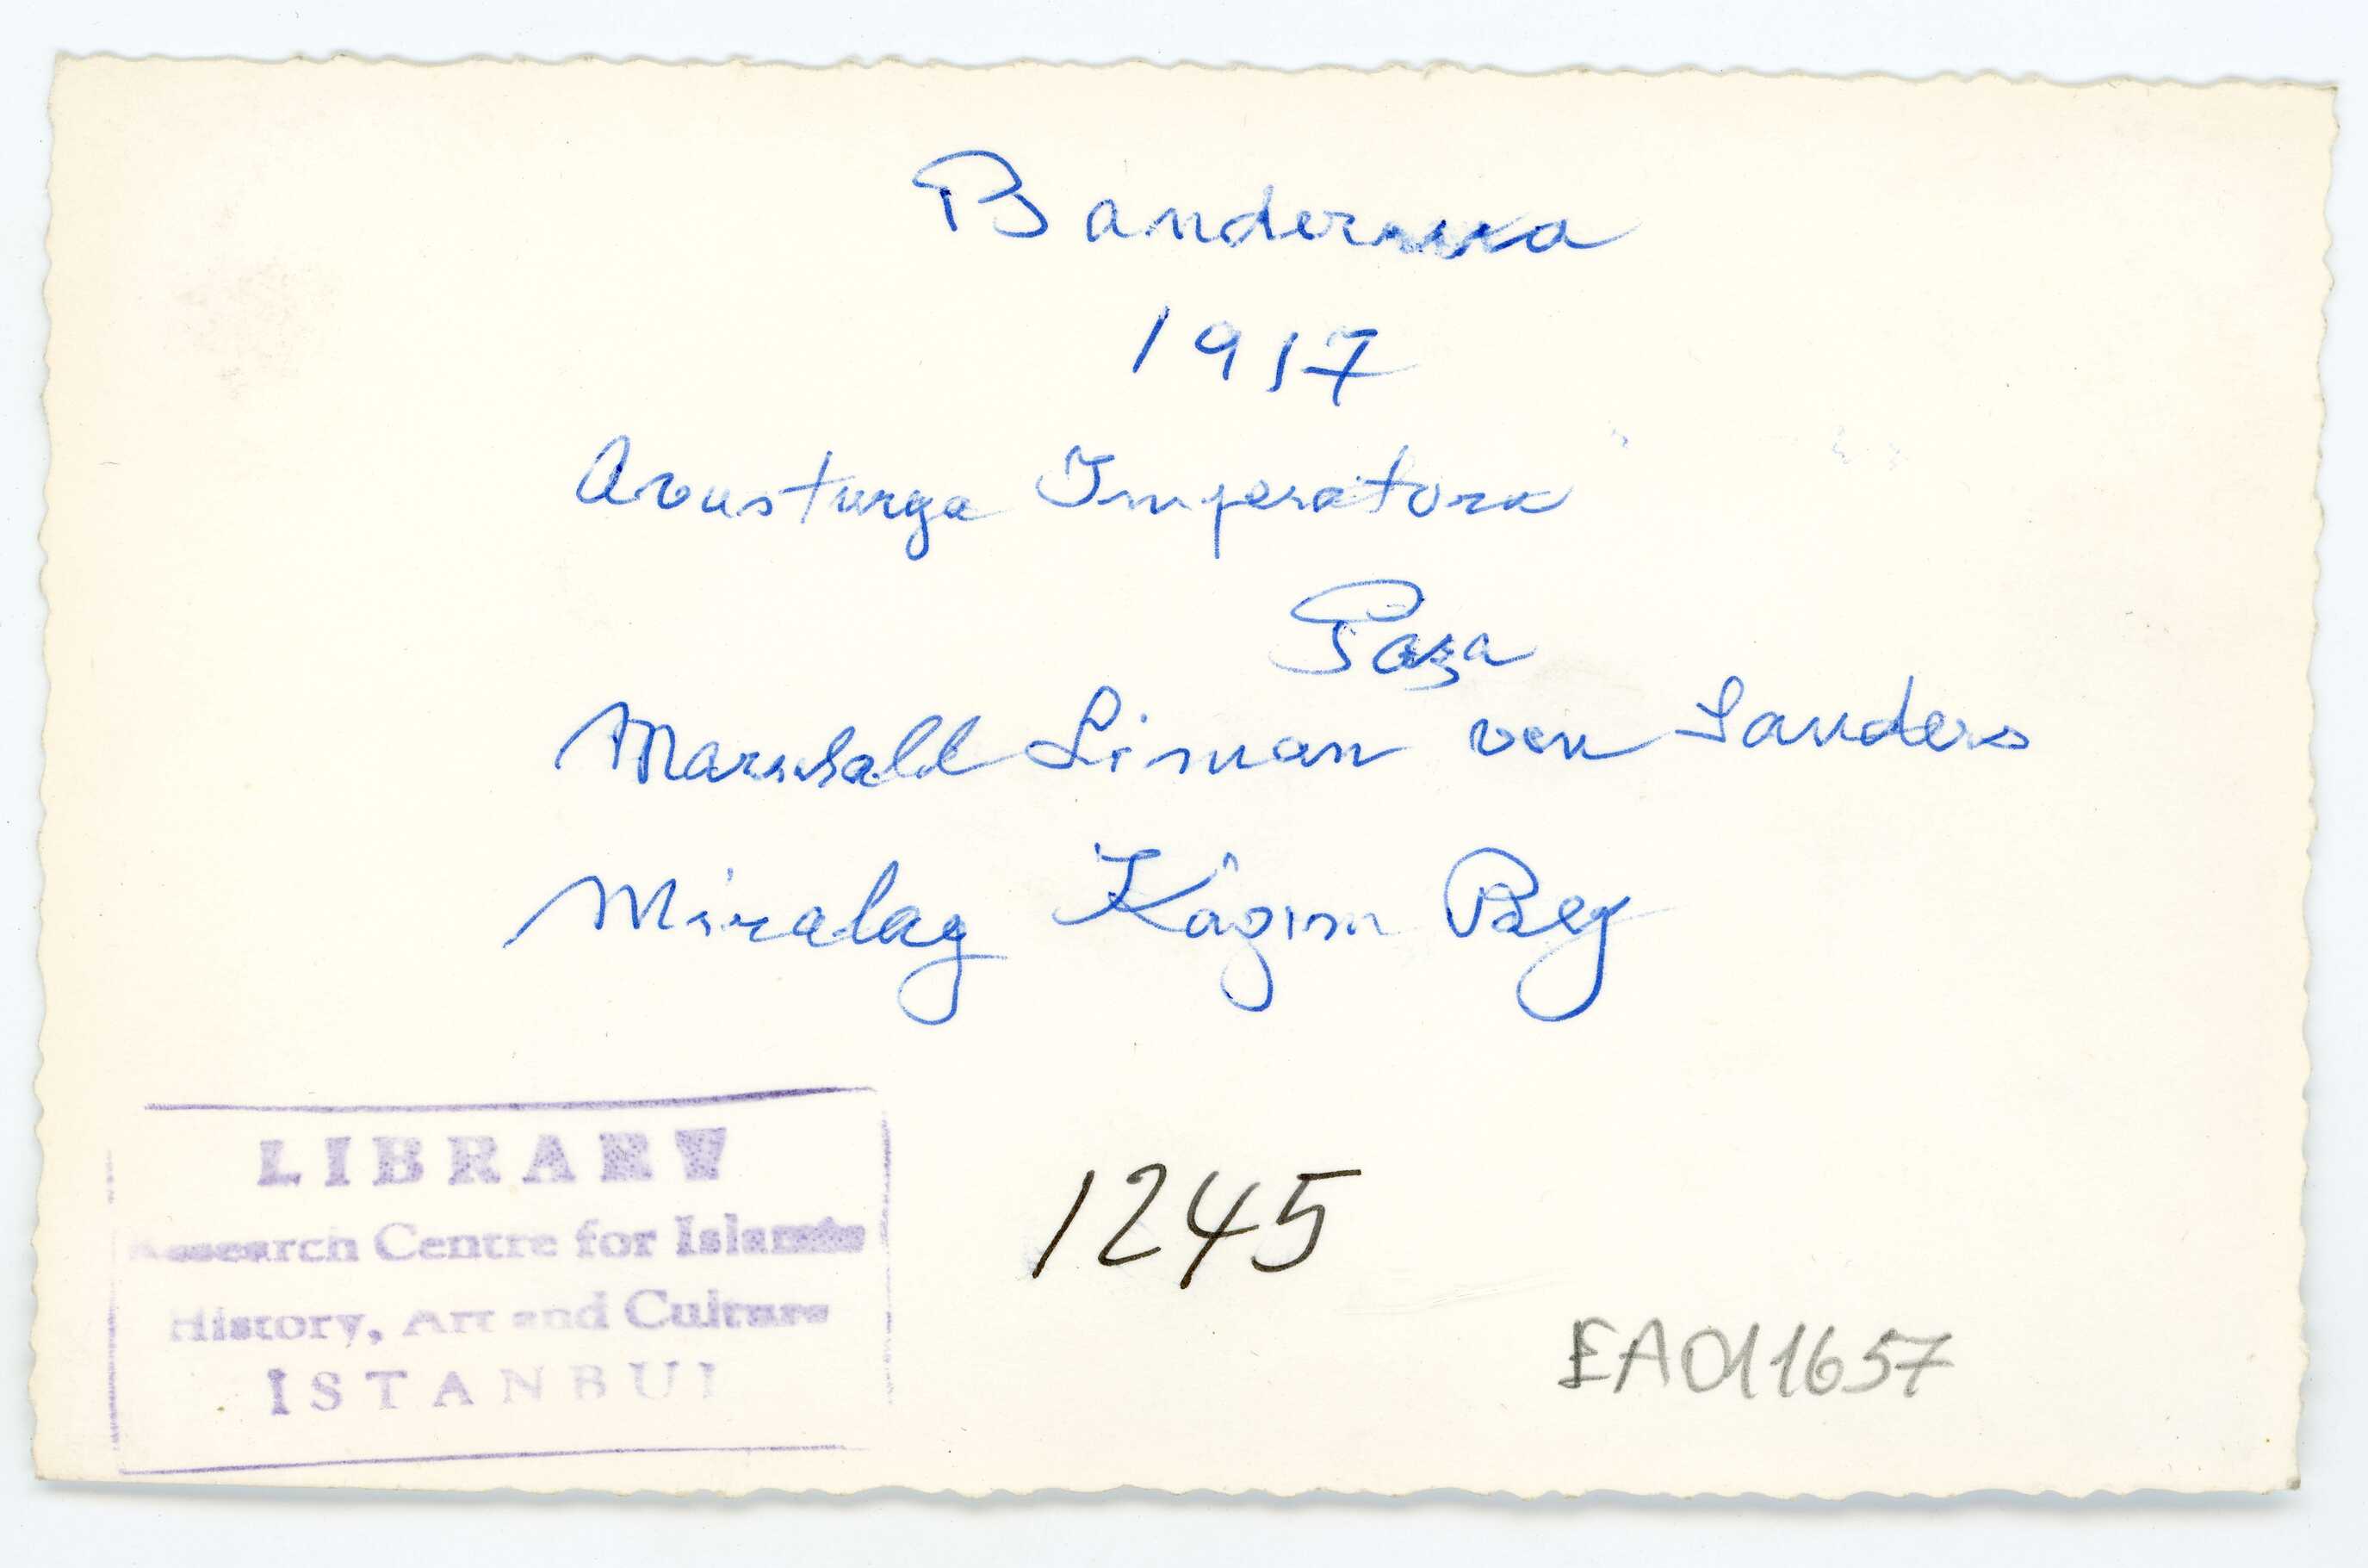 Banderma
1917
Avusturya İmperatoru
Paşa
Marschall Liman von Sanders
Miralay Kâzım Bey
LIBRARY
Research Centre for Islamic
History, Art and Culture
İSTANBUL
1245
EA011657